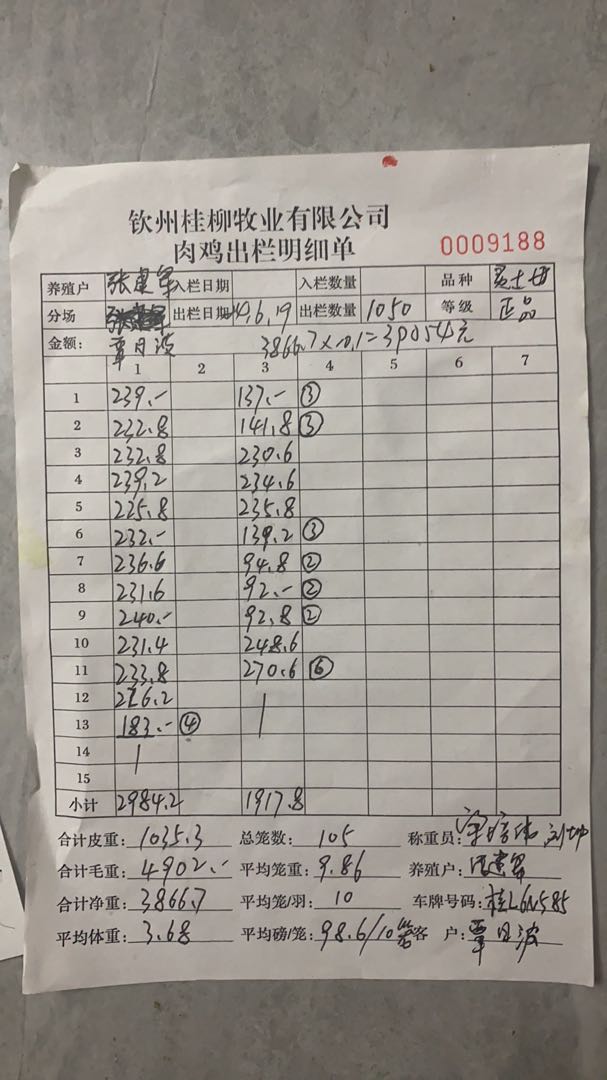 钦州桂柳牧业有限公司
肉鸡出栏明细单
0009188
养殖户 张建军 入栏日期 入栏数量 品种
分场 出栏日期 19,6,19 出栏数量 1050 等级 正品
金额: 覃日波 3866.7×10.1=39054元
1 2 3 4 5 6 7
1 239.- 137.- ③
2 232.8 141.8 ③
3 232.8 230.6
4 239.2 234.6
5 225.8 235.8
6 232.- 139.2 ③
7 236.6 94.8 ②
8 231.6 92.- ②
9 240.- 92.8 ②
10 231.4 248.6
11 233.8 270.6 ⑥
12 226.2
13 183.- ④
14
15
小计 2984.2 1917.8
合计皮重: 1035.3 总笼数: 105 称重员:
合计毛重: 4902.- 平均笼重: 9.86 养殖户: 张建军
合计净重: 3866.7 平均笼/羽: 10 车牌号码: 桂L6N585
平均体重: 3.68 平均磅/笼: 98.6/10 客 户: 覃日波